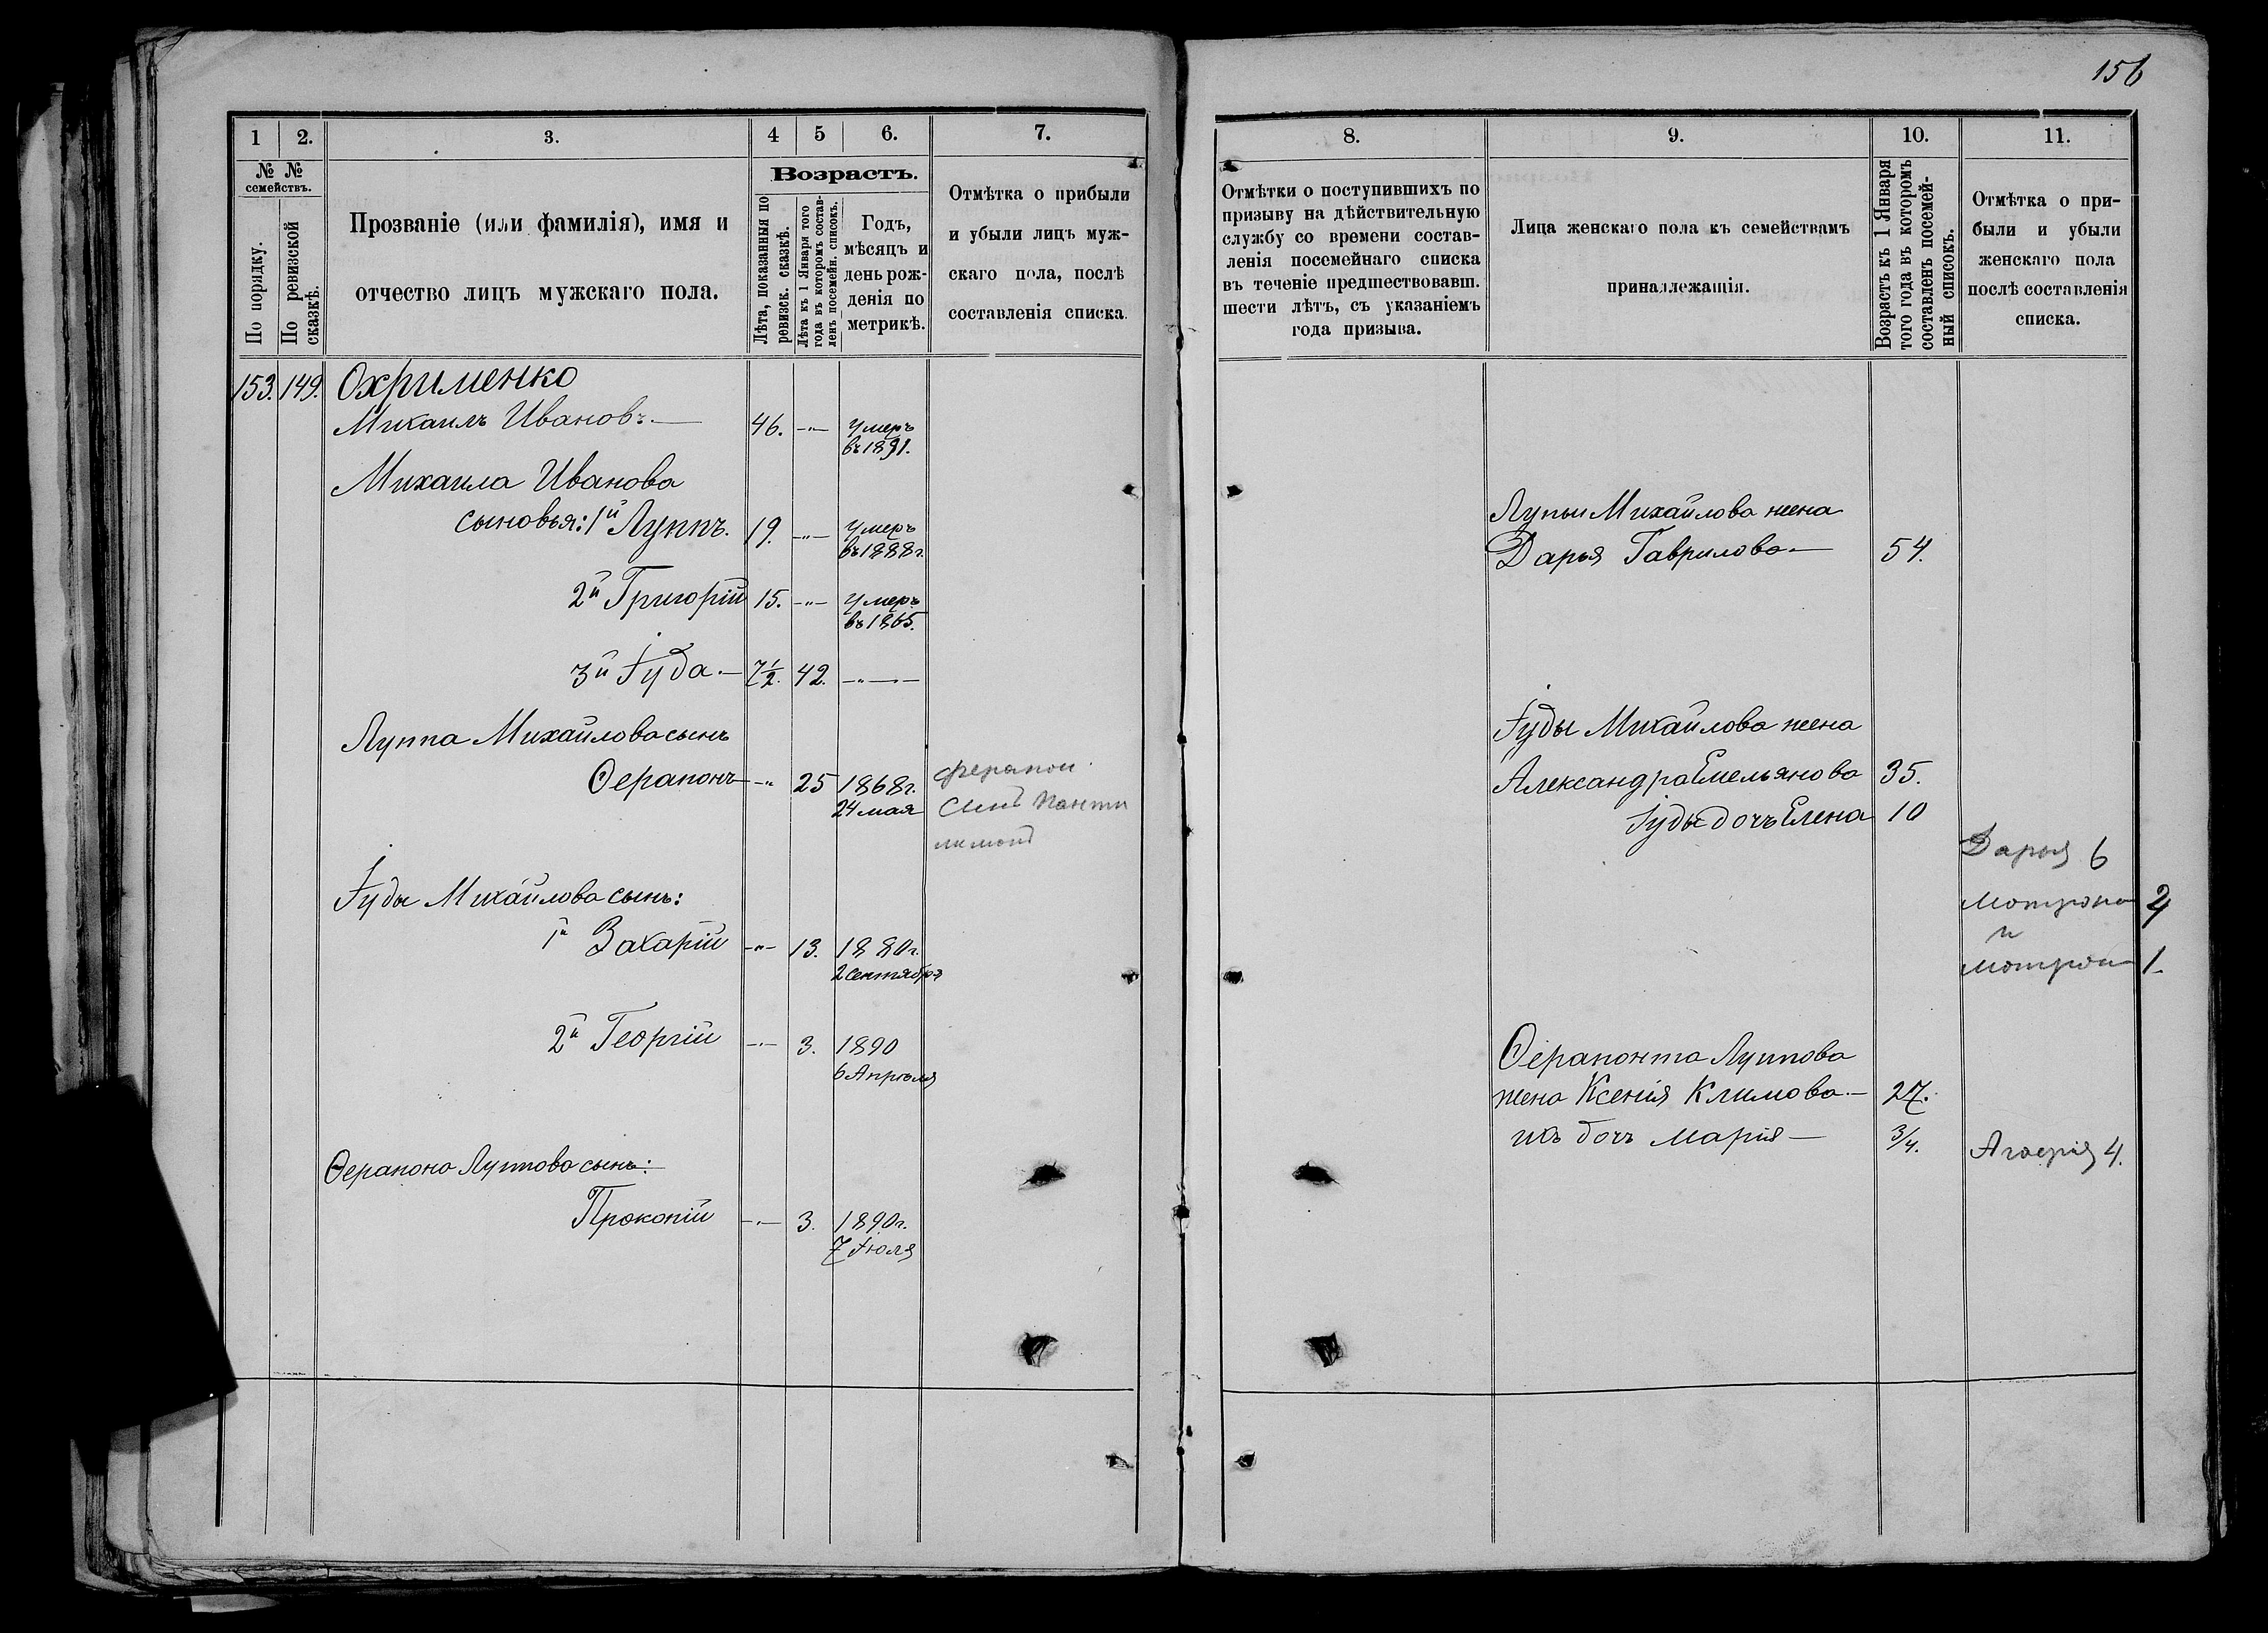 156
1
2.
3.
4
5
6.
7.
№ №
семействъ.
По порядку.
По ревизской
сказкѣ.
Прозваніе (или фамилія), имя и
отчество лицъ мужскаго пола.
Возрастъ.
Лѣта, показанныя по
ревизск. сказкѣ.
Лѣта къ 1 Января того
года въ которомъ состав-
ленъ посемейн. списокъ.
Годъ,
мѣсяцъ и
день рож-
денія по
метрикѣ.
Отмѣтка о прибыли
и убыли лицъ муж-
скаго пола, послѣ
составленія списка.
153. 149. Охрименко
Михаилъ Ивановъ.— 46. —"— умеръ
въ 1891.
Михаила Иванова
сыновья: 1й Луппъ. 19. —"— умеръ
въ 1888г.
2й Григорій 15. —"— умеръ
въ 1865.
3й Іуда.— 7½. 42. —"—
Луппа Михайлова сынъ
Ѳерапонъ —"— 25 1868г.
24 мая
ферапон
Синъ Панти
лимонъ
Іуды Михайлова сынъ:
1й Захарій —"— 13. 1880г.
2 сентября
2й Георгій —"— 3. 1890
6 Апрѣля
Ѳерапона Луппова сынъ:
Прокопій —"— 3. 1890г.
7 Іюля
8.
9.
10.
11.
Отмѣтки о поступившихъ по
призыву на дѣйствительную
службу со времени состав-
ленія посемейнаго списка
въ теченіе предшествовавш.
шести лѣтъ, съ указаніемъ
года призыва.
Лица женскаго пола къ семействамъ
принадлежащія.
Возрастъ къ 1 Января
того года въ которомъ
составленъ посемей-
ный списокъ.
Отмѣтка о при-
были и убыли
женскаго пола
послѣ составленія
списка.
Лупы Михайлова жена
Дарья Гаврилова— 54.
Іуды Михайлова жена
Александра Емельянова 35.
Іуды дочь Елена 10
Дарья 6
Мотрона 2
и
Мотрон 1
Ѳерапонта Луппова
жена Ксенія Климова.— 27.
ихъ дочь Марія— ¾.
4.